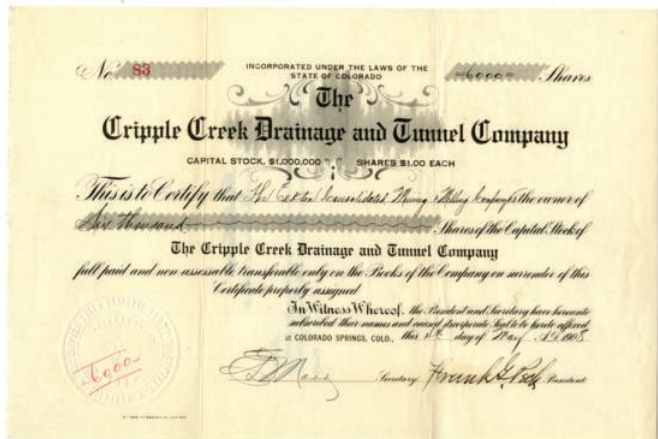 No. 83
INCORPORATED UNDER THE LAWS OF THE
STATE OF COLORADO
6000 Shares
The
Cripple Creek Drainage and Tunnel Company
CAPITAL STOCK, $1,000,000 SHARES $1.00 EACH
This is to Certify that The Consolidated Mining & Milling Company is the owner of
Six thousand Shares of the Capital Stock of
The Cripple Creek Drainage and Tunnel Company
full paid and non assessable transferable only on the Books of the Company on surrender of this
Certificate properly assigned
In Witness Whereof, the President and Secretary have hereunto
subscribed their names and caused its corporate Seal to be hereto affixed,
at COLORADO SPRINGS, COLO., this 4th day of May A.D. 190
Secretary President
6000